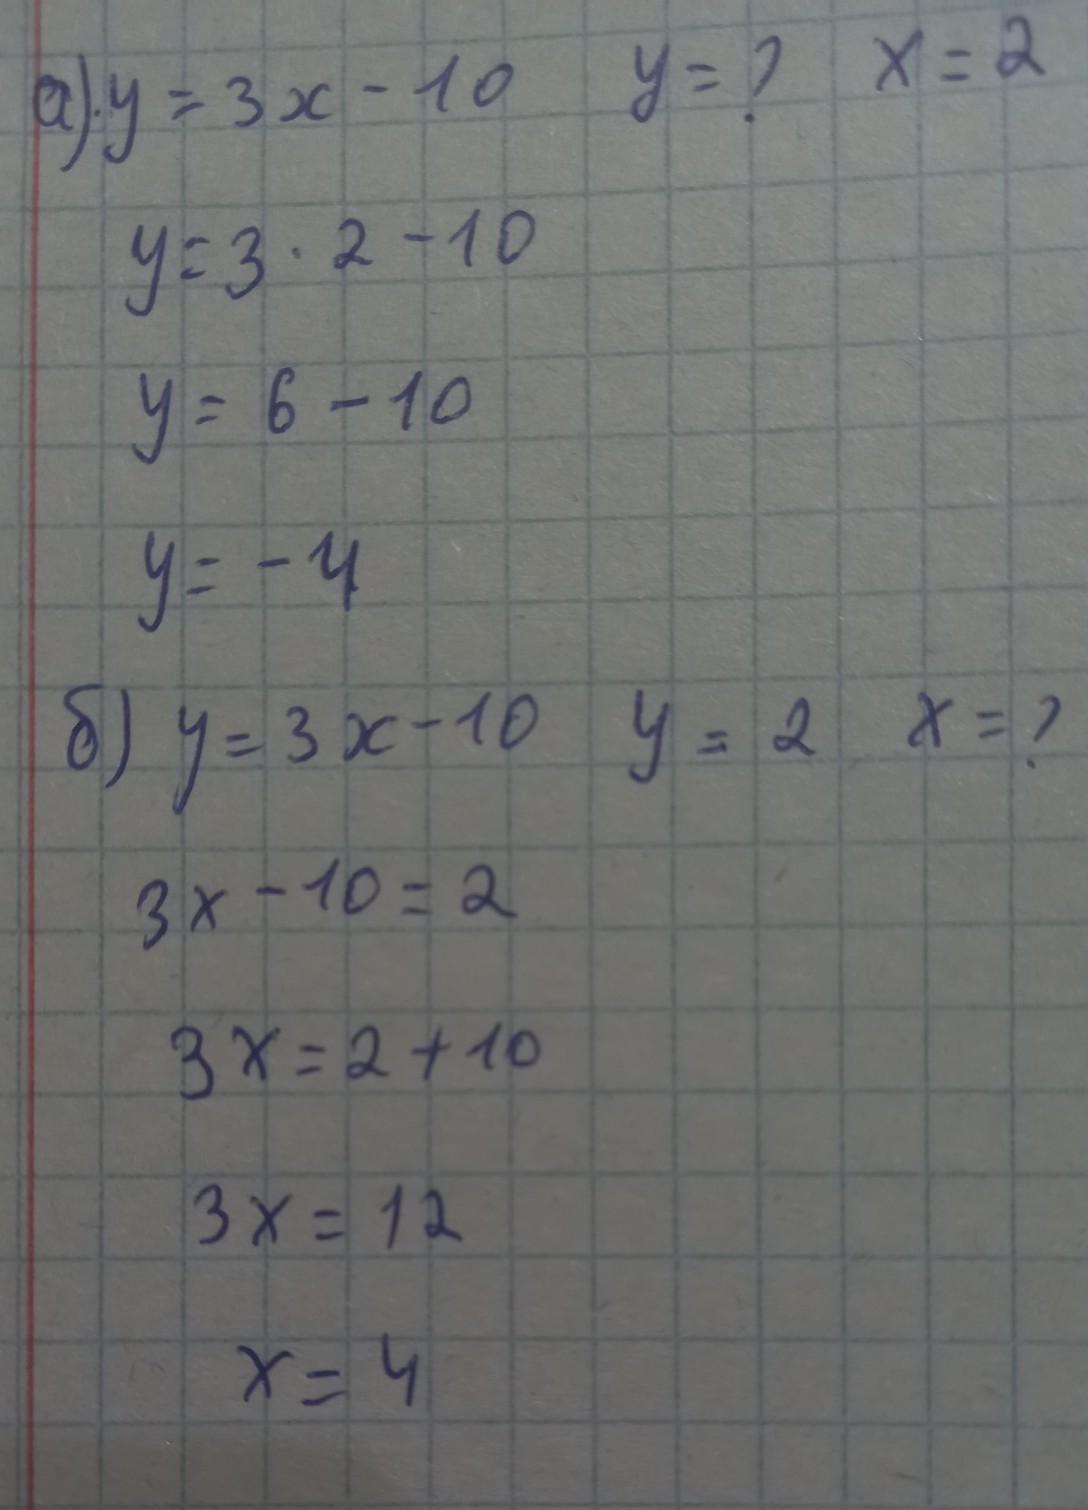 а) y = 3x - 10 y = ? x = 2
y = 3 · 2 - 10
y = 6 - 10
y = - 4
б) y = 3x - 10 y = 2 x = ?
3x - 10 = 2
3x = 2 + 10
3x = 12
x = 4